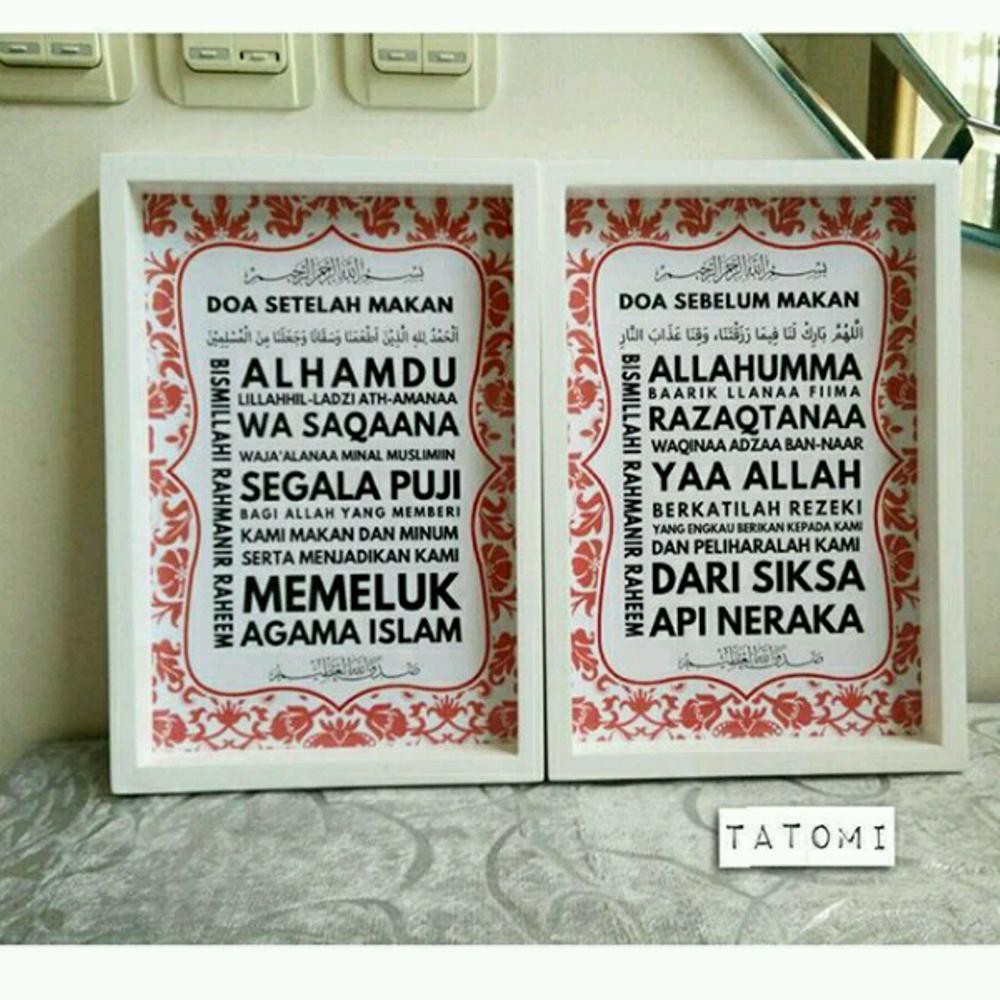 بسم الله الرحمن الرحيم
DOA SETELAH MAKAN
اَلْحَمْدُ لِلهِ الَّذِيْنَ اَطْعَمَنَا وَسَقَانَا وَجَعَلَنَا مِنَ الْمُسْلِمِيْنَ
BISMILLAHI RAHMANIR RAHEEM
ALHAMDU
LILLAHHIL-LADZI ATH-AMANAA
WA SAQAANA
WAJA'ALANAA MINAL MUSLIMIIN
SEGALA PUJI
BAGI ALLAH YANG MEMBERI
KAMI MAKAN DAN MINUM
SERTA MENJADIKAN KAMI
MEMELUK
AGAMA ISLAM
صدق الله العظيم
بسم الله الرحمن الرحيم
DOA SEBELUM MAKAN
اَللّٰهُمَّ بَارِكْ لَنَا فِيمَا رَزَقْتَنَا، وَقِنَا عَذَابَ النَّارِ
BISMILLAHI RAHMANIR RAHEEM
ALLAHUMMA
BAARIK LLANAA FIIMA
RAZAQTANAA
WAQINAA ADZAA BAN-NAAR
YAA ALLAH
BERKATILAH REZEKI
YANG ENGKAU BERIKAN KEPADA KAMI
DAN PELIHARALAH KAMI
DARI SIKSA
API NERAKA
صدق الله العظيم
TATOMI